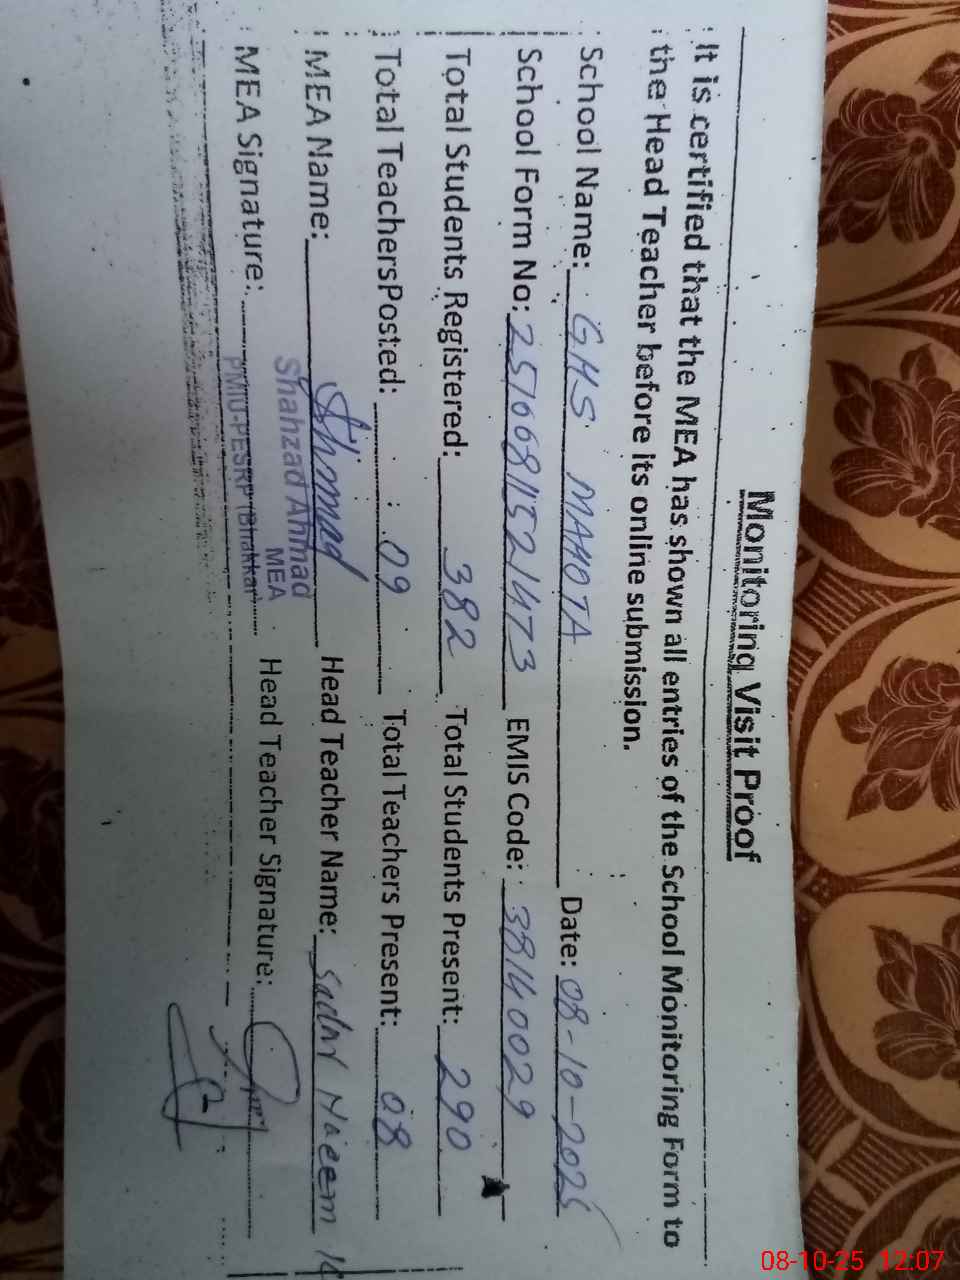 Monitoring Visit Proof
It is certified that the MEA has shown all entries of the School Monitoring Form to
the Head Teacher before its online submission.
School Name: GHS MAHOTA Date: 08-10-2025
School Form No: 2510681521473 EMIS Code: 38140029
Total Students Registered: 382 Total Students Present: 290
Total TeachersPosted: 09 Total Teachers Present: 08
MEA Name: Ahmad Head Teacher Name: Naeem
MEA Signature: Head Teacher Signature:
Shahzad Ahmad
MEA
PMIU-PESRP (Bhakkar)
08-10-25 12:07